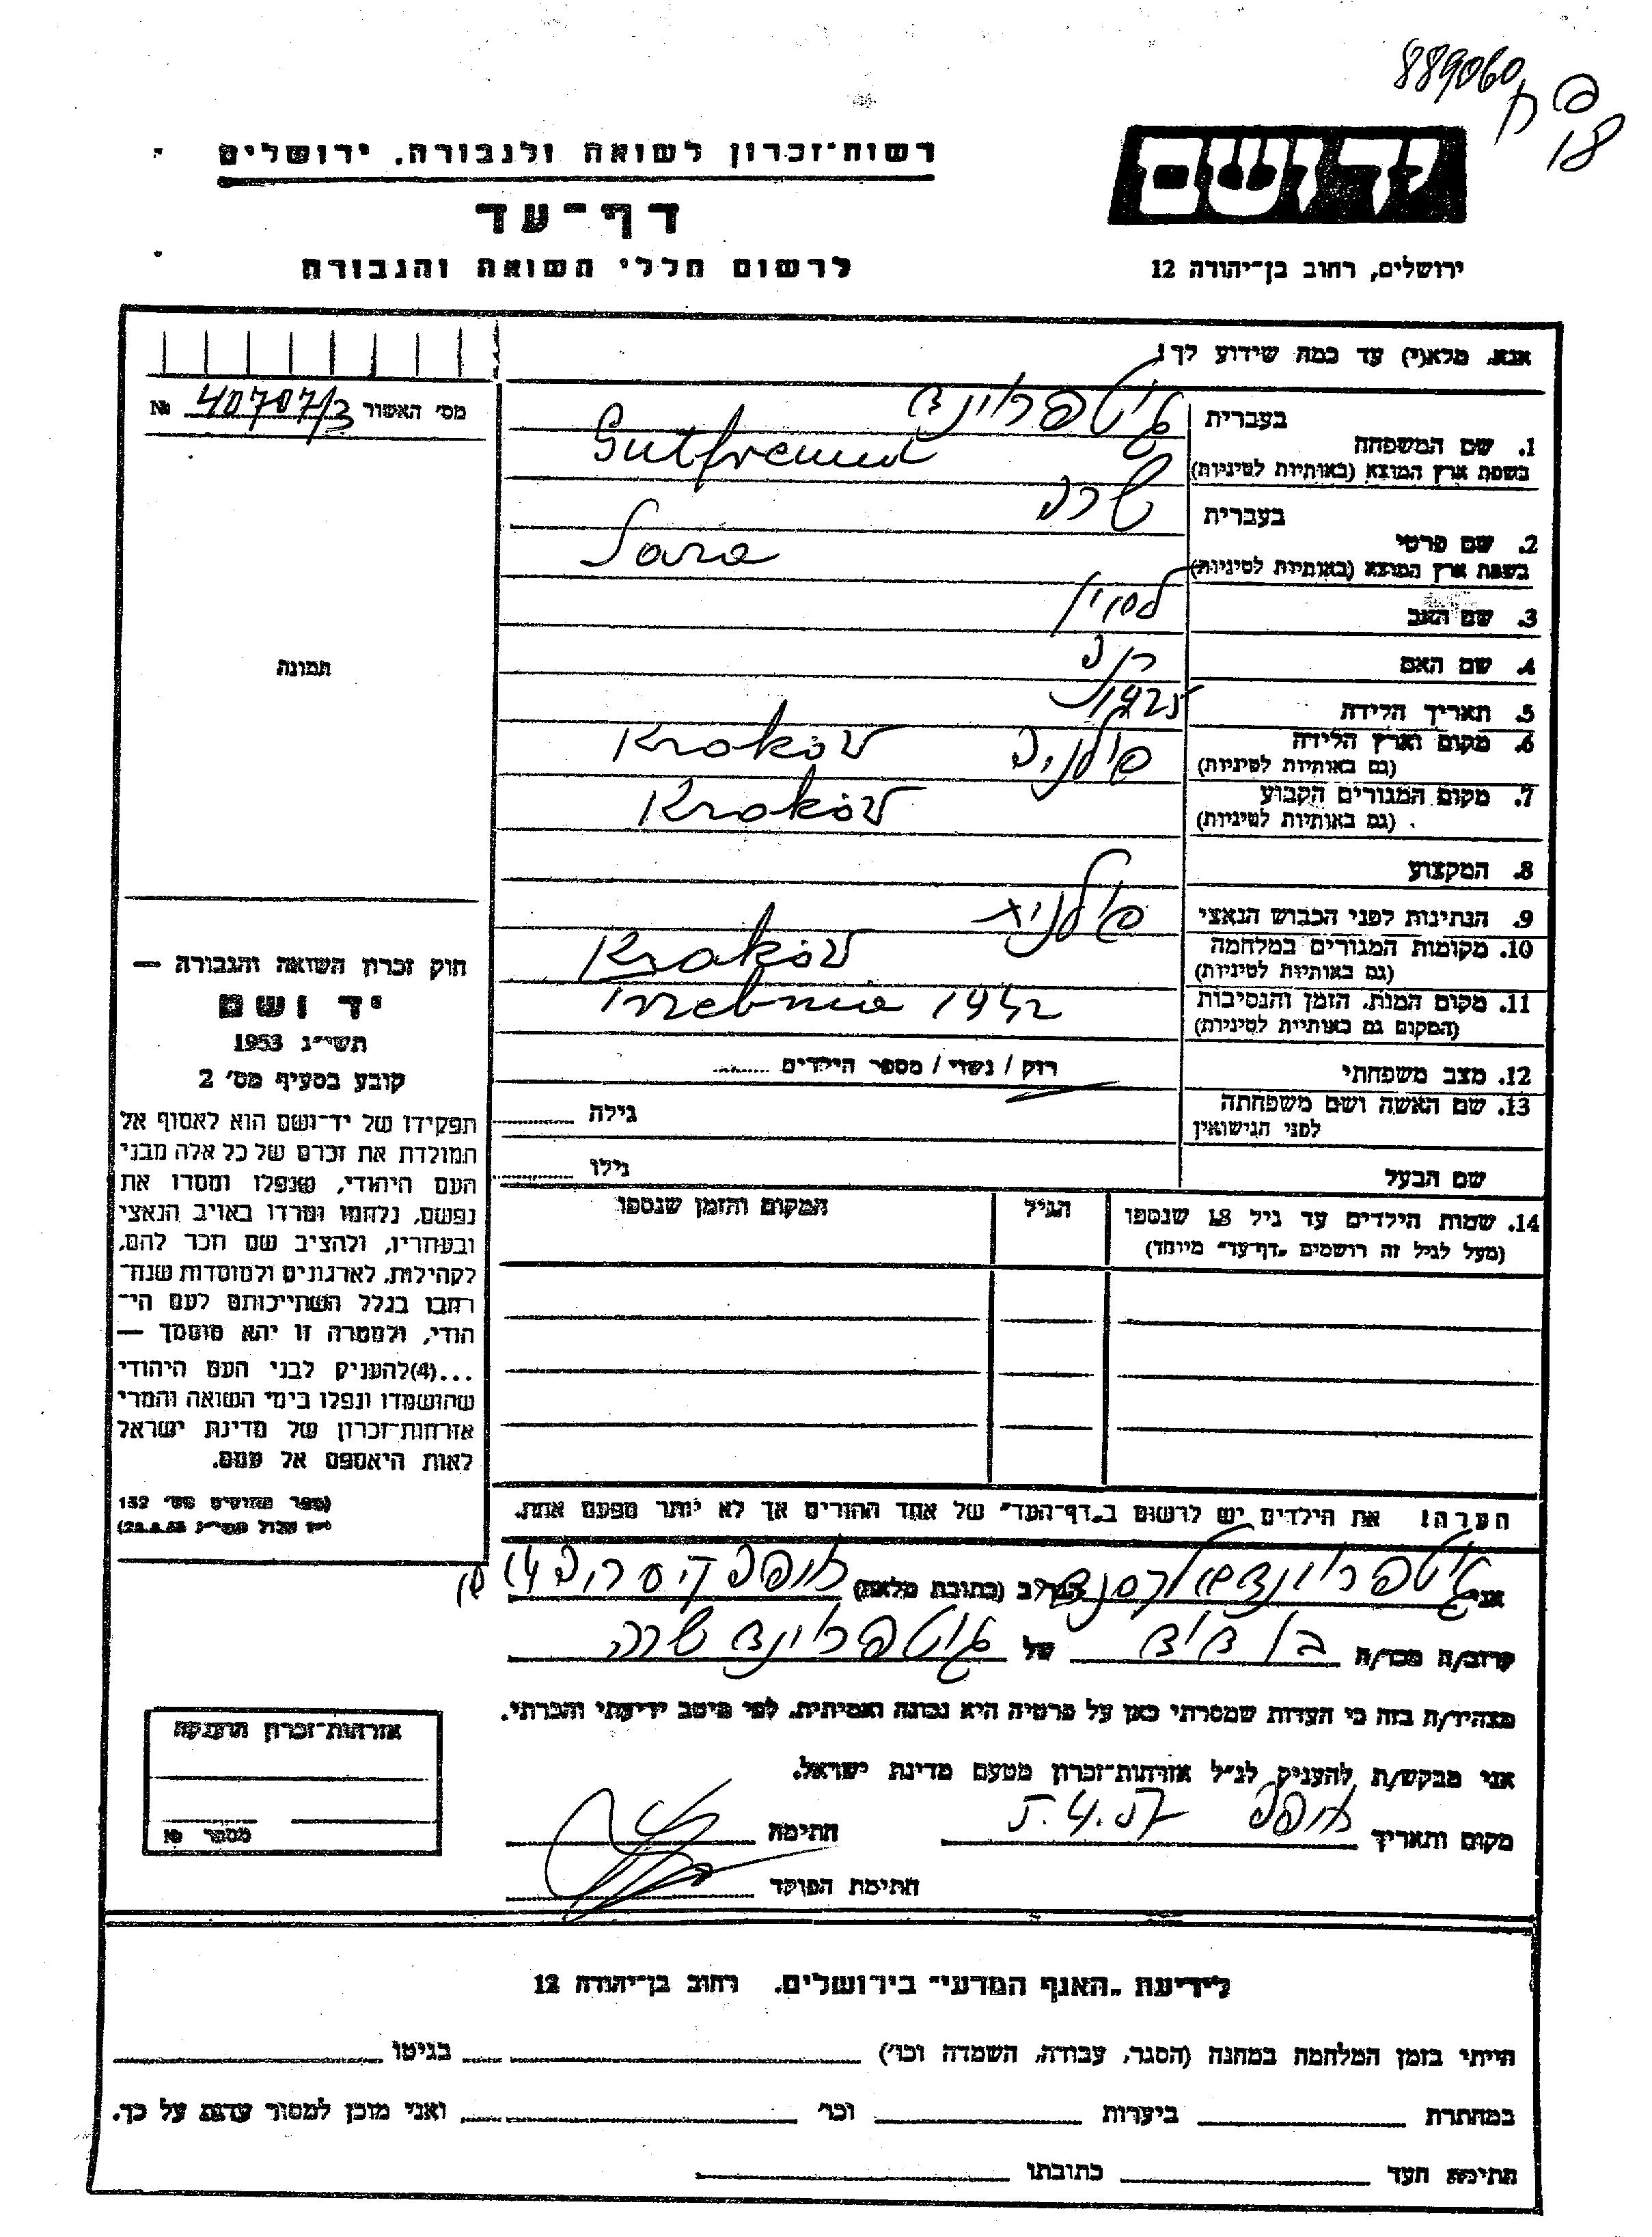 889060
פ
ח
18
יד ושם
רשות־זכרון לשואה ולגבורה, ירושלים
דף־עד
לרשום חללי השואה והגבורה
ירושלים, רחוב בן־יהודה 12
אנא, מלא(י) עד כמה שידוע לך!
מס׳ האשור 40707/3 №
1. שם המשפחה
בעברית גוטפרוינד
בשפת ארץ המוצא (באותיות לטיניות) Gutfreund
2. שם פרטי
בעברית שרה
בשפת ארץ המוצא (באותיות לטיניות) Sara
3. שם האב
4. שם האם
5. תאריך הלידה
6. מקום וארץ הלידה פולניה Kraków
(גם באותיות לטיניות)
7. מקום המגורים הקבוע Kraków
(גם באותיות לטיניות)
8. המקצוע
9. הנתינות לפני הכבוש הנאצי פולנית
10. מקומות המגורים במלחמה Kraków
(גם באותיות לטיניות)
11. מקום המות, הזמן והנסיבות Trzebnia 1942
(המקום גם באותיות לטיניות)
12. מצב משפחתי רוק / נשוי / מספר הילדים
13. שם האשה ושם משפחתה גילה
לפני הנישואין
שם הבעל גילו
14. שמות הילדים עד גיל 18 שנספו הגיל המקום והזמן שנספו
(מעל לגיל זה רושמים „דף־עד״ מיוחד)
תמונה
חוק זכרון השואה והגבורה —
יד ושם
תשי״ג 1953
קובע בסעיף מס׳ 2
תפקידו של יד־ושם הוא לאסוף אל
המולדת את זכרם של כל אלה מבני
העם היהודי, שנפלו ומסרו את
נפשם, נלחמו ומרדו באויב הנאצי
ובעוזריו, ולהציב שם וזכר להם,
לקהילות, לארגונים ולמוסדות שנח־
רבו בגלל השתייכותם לעם הי־
הודי, ולמטרה זו יהא מוסמך —
...(4) להעניק לבני העם היהודי
שהושמדו ונפלו בימי השואה והמרי
אזרחות־זכרון של מדינת ישראל
לאות היאספם אל עמם.
(ספר החוקים מס׳ 132
י״ז אלול תשי״ג 28.8.53)
הערה! את הילדים יש לרשום ב„דף־העד״ של אחד ההורים אך לא יותר מפעם אחת.
אני גוטפרוינד הגר ב (כתובת מלאה) חיפה
קרוב/ה מכר/ה בן דוד של גוטפרוינד שרה
מצהיר/ה בזה כי העדות שמסרתי כאן על פרטיה היא נכונה ואמיתית, לפי מיטב ידיעתי והכרתי.
אני מבקש/ת להעניק לנ״ל אזרחות־זכרון מטעם מדינת ישראל.
מקום ותאריך חיפה 5.4.57 חתימה
חתימת הפוקד
אזרחות־זכרון הוענקה
מספר №
לידיעת „האגף המדעי״ בירושלים, רחוב בן־יהודה 12
הייתי בזמן המלחמה במחנה (הסגר, עבודה, השמדה וכו׳) בגיטו
במחתרת ביערות וכו׳ ואני מוכן למסור עדות על כך.
חתימת העד כתובתו